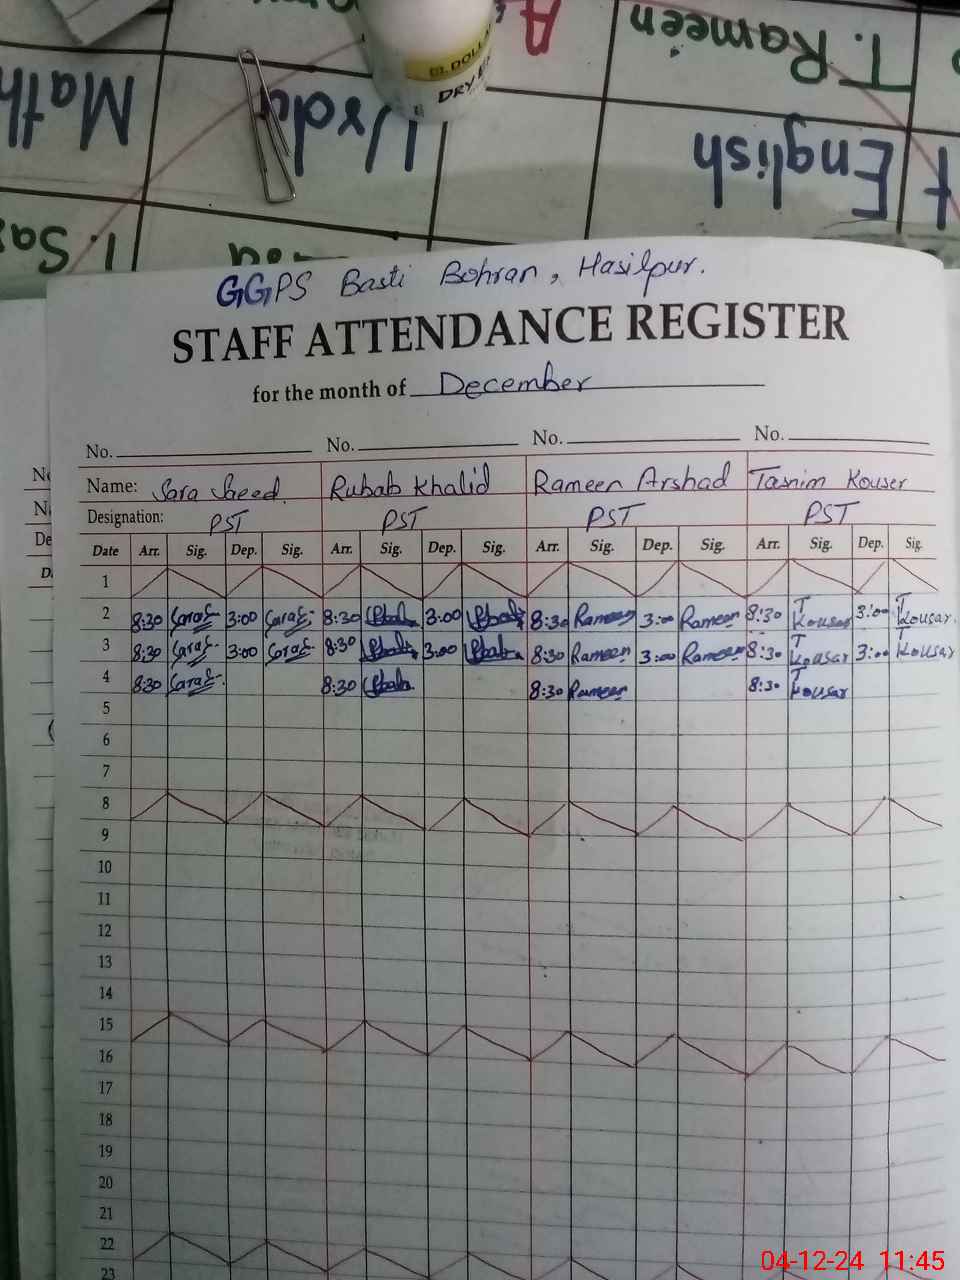 T. Rameen
Math
Urdu
English
DOLLAR
DRY
GGPS Basti Bohran, Hasilpur.
STAFF ATTENDANCE REGISTER
for the month of December
No. No. No. No.
Name: Sara Saeed. Rubab Khalid Rameen Arshad Tasnim Kouser
Designation: PST PST PST PST
Date Arr. Sig. Dep. Sig. Arr. Sig. Dep. Sig. Arr. Sig. Dep. Sig. Arr. Sig. Dep. Sig.
1
2 8:30 3:00 8:30 3:00 8:30 Rameen 3:00 Rameen 8:30 T Kousar 3:00 T Kousar.
3 8:30 3:00 8:30 3:00 8:30 Rameen 3:00 Rameen 8:30 T Kousar 3:00 T Kousar
4 8:30 8:30 8:30 Rameen 8:30 T Kousar
5
6
7
8
9
10
11
12
13
14
15
16
17
18
19
20
21
22
23
04-12-24 11:45